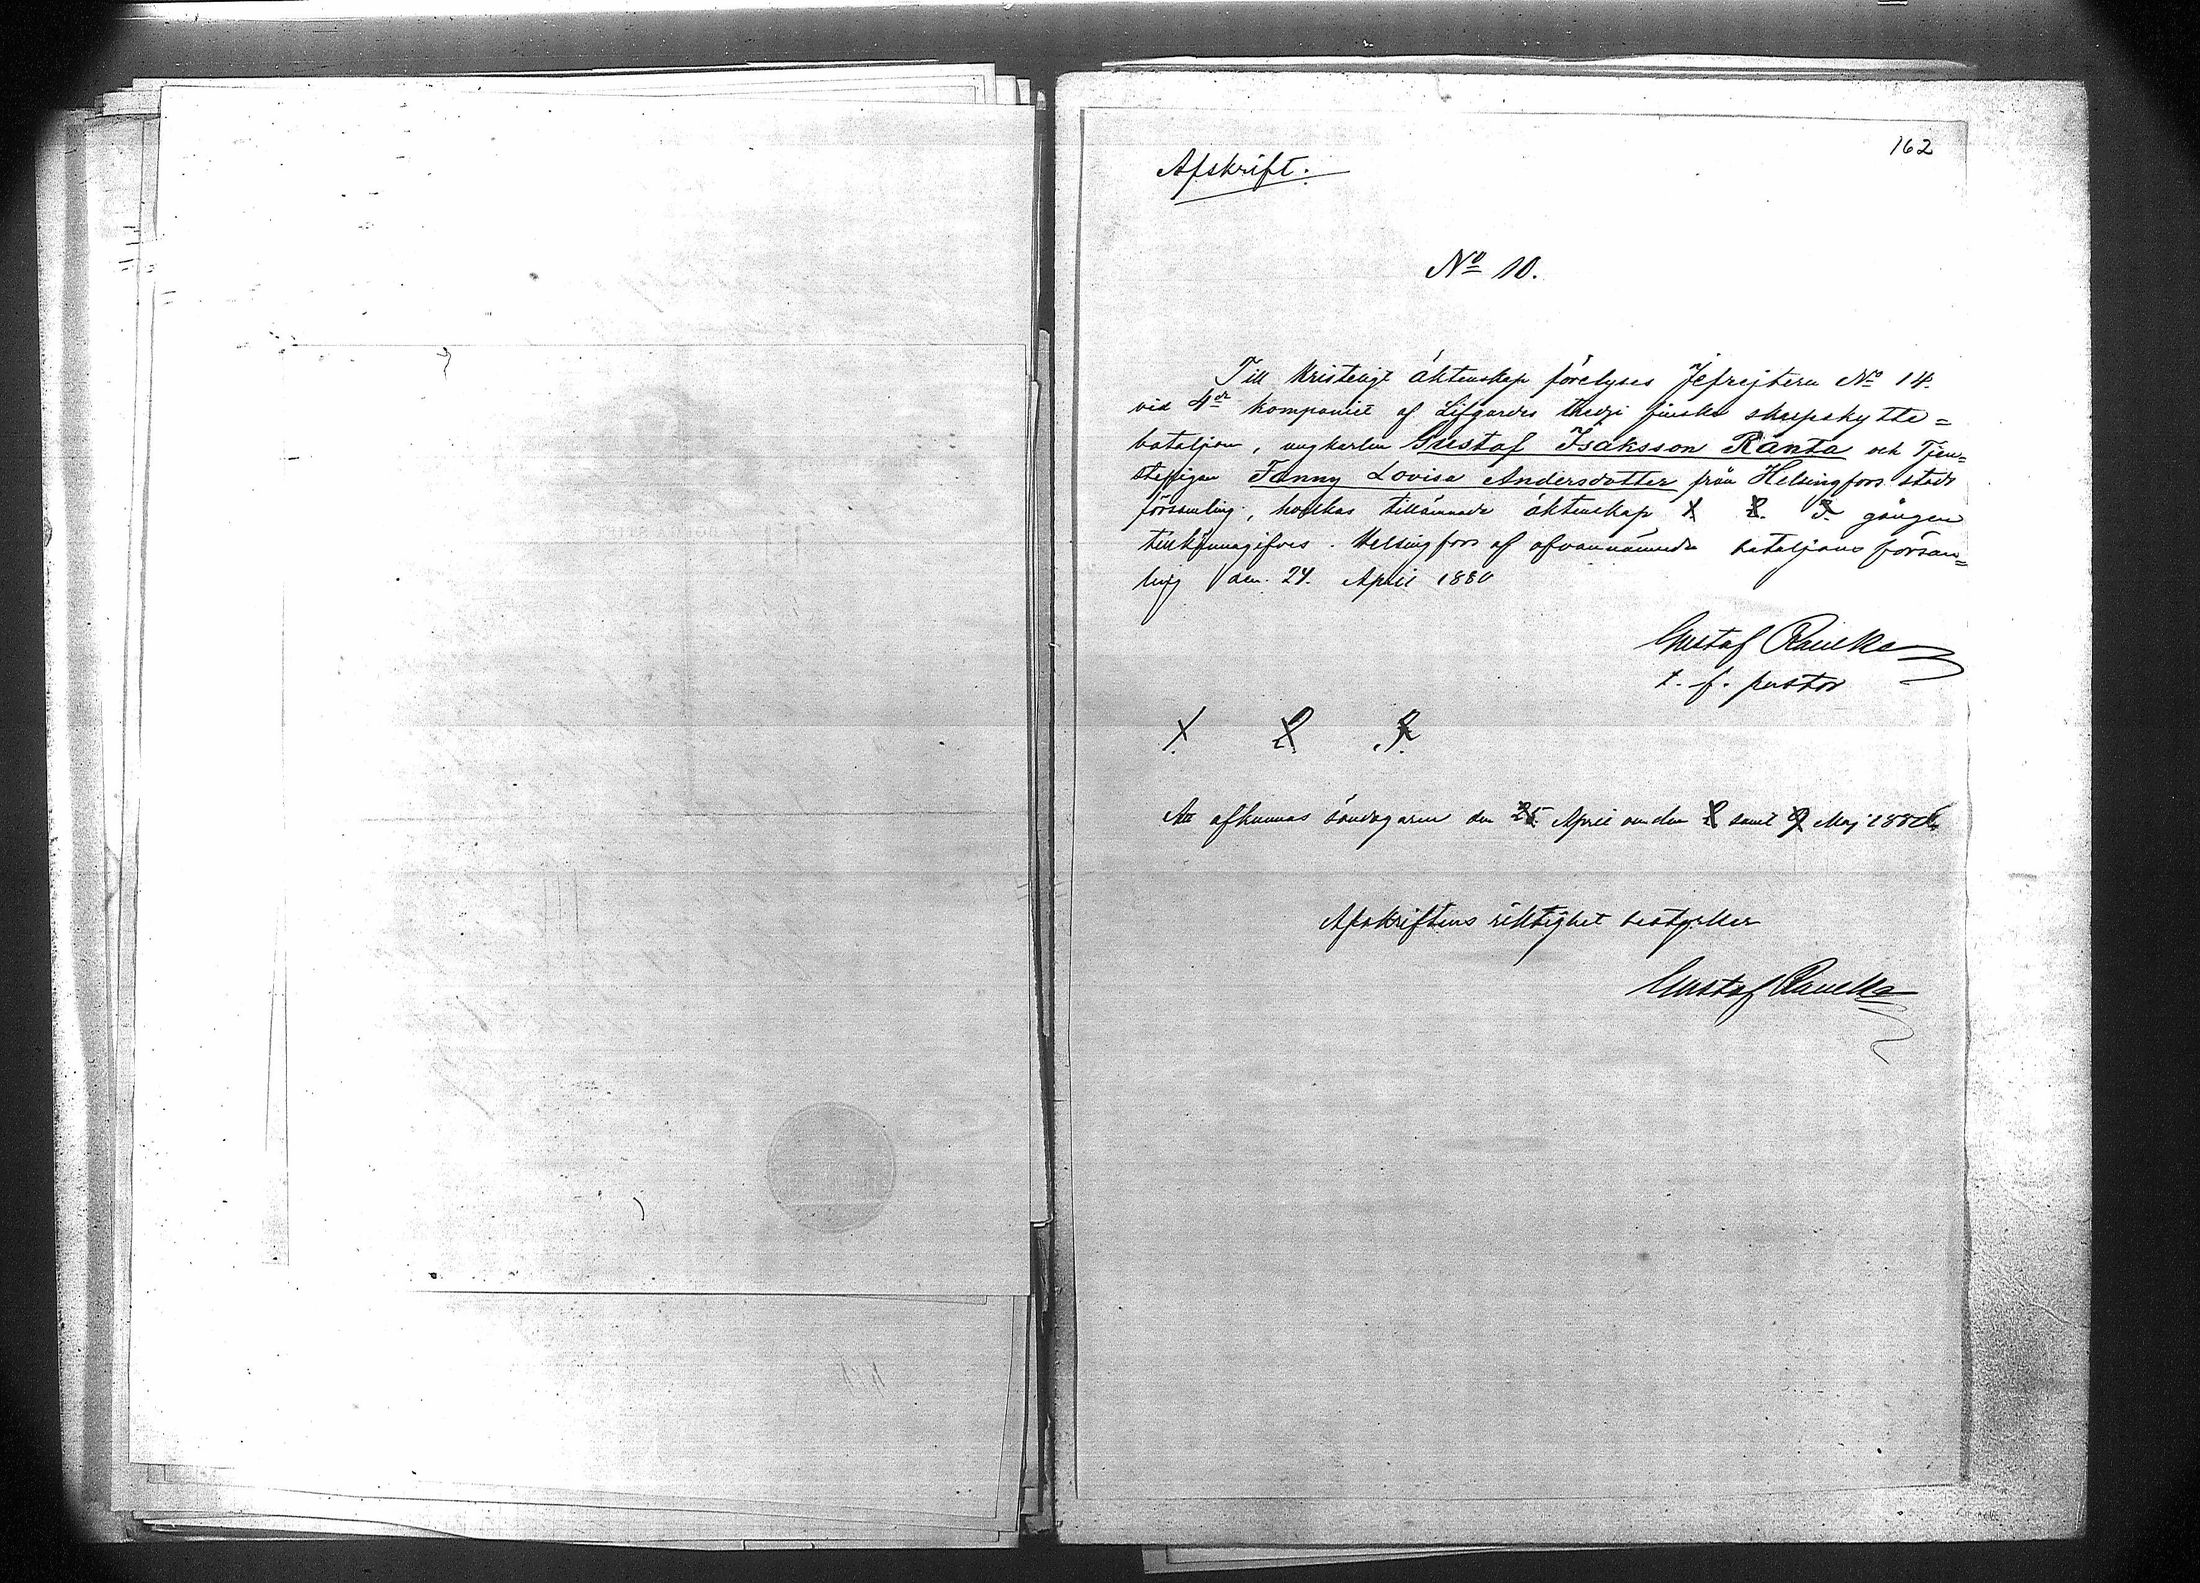 162
Afskrift.
No 10.
Till kristeligt äktenskap förelyses Jefrejtern No 14.
vid 4de kompaniet af Lifgardes tredje finska skarpskytte=
bataljon, ungkarlen Gustaf Isaksson Ranta och Tjen=
stefligan Fanny Lovisa Andersdotter från Helsingfors stads
församling, hvilkas tillämnade äktenskap 1. 2. 3. gången
tillkännagifves. Helsingfors af ofvannämnde bataljons försam=
ling den 24. April 1880
Gustaf
t. f. pastor
1. 2. 3.
Att afkunnas söndagarne den 25. April den 2 samt 9 Maj 1880.
Afskriftens riktighet bestyrker
Gustaf